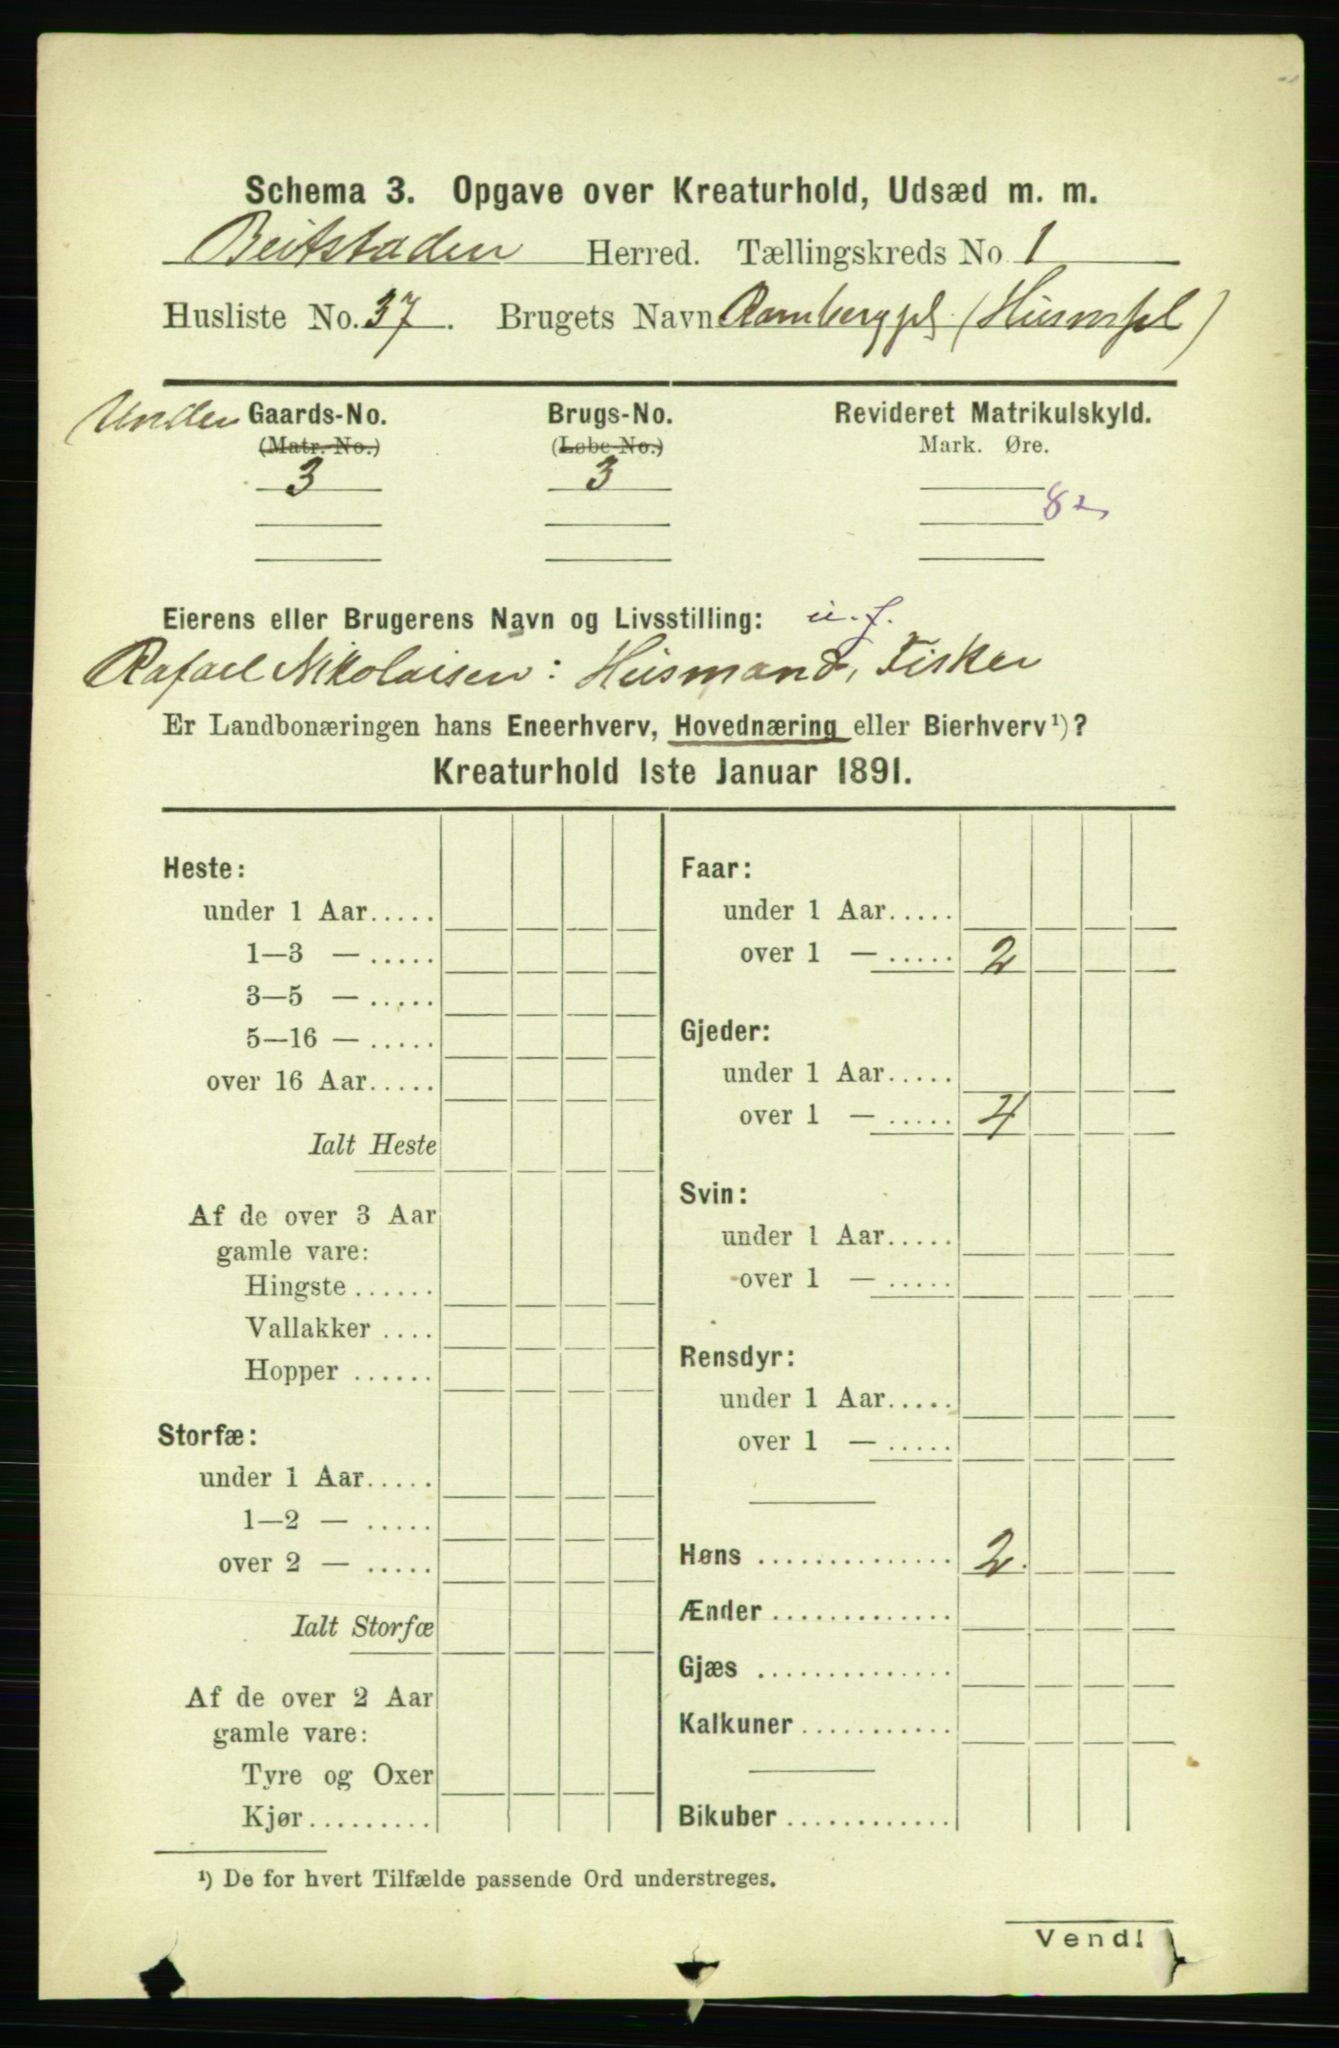 Schema 3. Opgave over Kreaturhold, Udsæd m. m.
Beitstaden Herred. Tællingskreds No 1
Husliste No. 37. Brugets Navn Rambergpl. (Husmpl)
Under Gaards-No. Brugs-No. Revideret Matrikulskyld.
(Matr. No.) (Løbe-No.) Mark. Øre.
3 3
82
Eierens eller Brugerens Navn og Livsstilling: u. f.
Rafael Nikolaisen: Husmand, Fisker
Er Landbonæringen hans Eneerhverv, Hovednæring eller Bierhverv¹)?
Kreaturhold 1ste Januar 1891.
Heste:
under 1 Aar.....
1—3 — .....
3—5 — .....
5—16 — .....
over 16 Aar.....
Ialt Heste
Af de over 3 Aar
gamle vare:
Hingste ......
Vallakker ....
Hopper ......
Storfæ:
under 1 Aar.....
1—2 — .....
over 2 — .....
Ialt Storfæ
Af de over 2 Aar
gamle vare:
Tyre og Oxer
Kjør.........
Faar:
under 1 Aar.....
over 1 — ..... 2
Gjeder:
under 1 Aar.....
over 1 — ..... 4
Svin:
under 1 Aar.....
over 1 — .....
Rensdyr:
under 1 Aar.....
over 1 — .....
Høns .............. 2.
Ænder .............
Gjæs ..............
Kalkuner ...........
Bikuber ............
¹) De for hvert Tilfælde passende Ord understreges.
Vend!